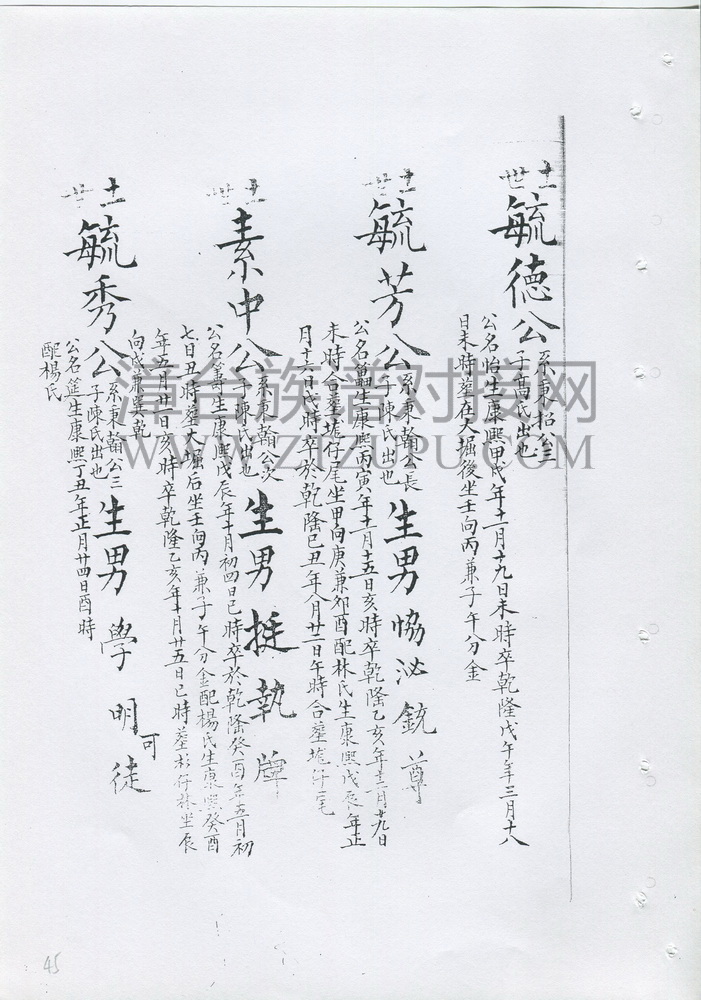 十一世
毓德公
系秉招公三
子高氏出也
公名怡生康熙甲戌年十一月十九日未時卒乾隆戊午年三月十八
日未時墓在大堀後坐壬向丙兼子午分金
十一世
毓芳公
系秉翰公長
子陳氏出也
生男 協泌銃尊
公名簠生康熙丙寅年十一月十五日亥時卒乾隆乙亥年十二月廿九日
未時合墓墟仔尾坐甲向庚兼卯酉配林氏生康熙戊辰年正
月十六日戌時卒於乾隆己丑年八月廿二日午時合墓墟仔尾
十一世
素中公
系秉翰公次
子陳氏出也
生男 挺執牌
公名籌生康熙戊辰年十月初四日巳時卒於乾隆癸酉年五月初
七日丑時墓大堀后坐壬向丙兼子午分金配楊氏生康熙癸酉
年五月廿日亥時卒乾隆乙亥年十月廿五日巳時墓 仔林坐辰
向戌兼巽乾
十一世
毓秀公
系秉翰公三
子陳氏出也
生男 學明可徒
公名筵生康熙丁丑年正月廿四日酉時
配楊氏
漳台族谱对接网
WWW.ZTZUPU.COM
45